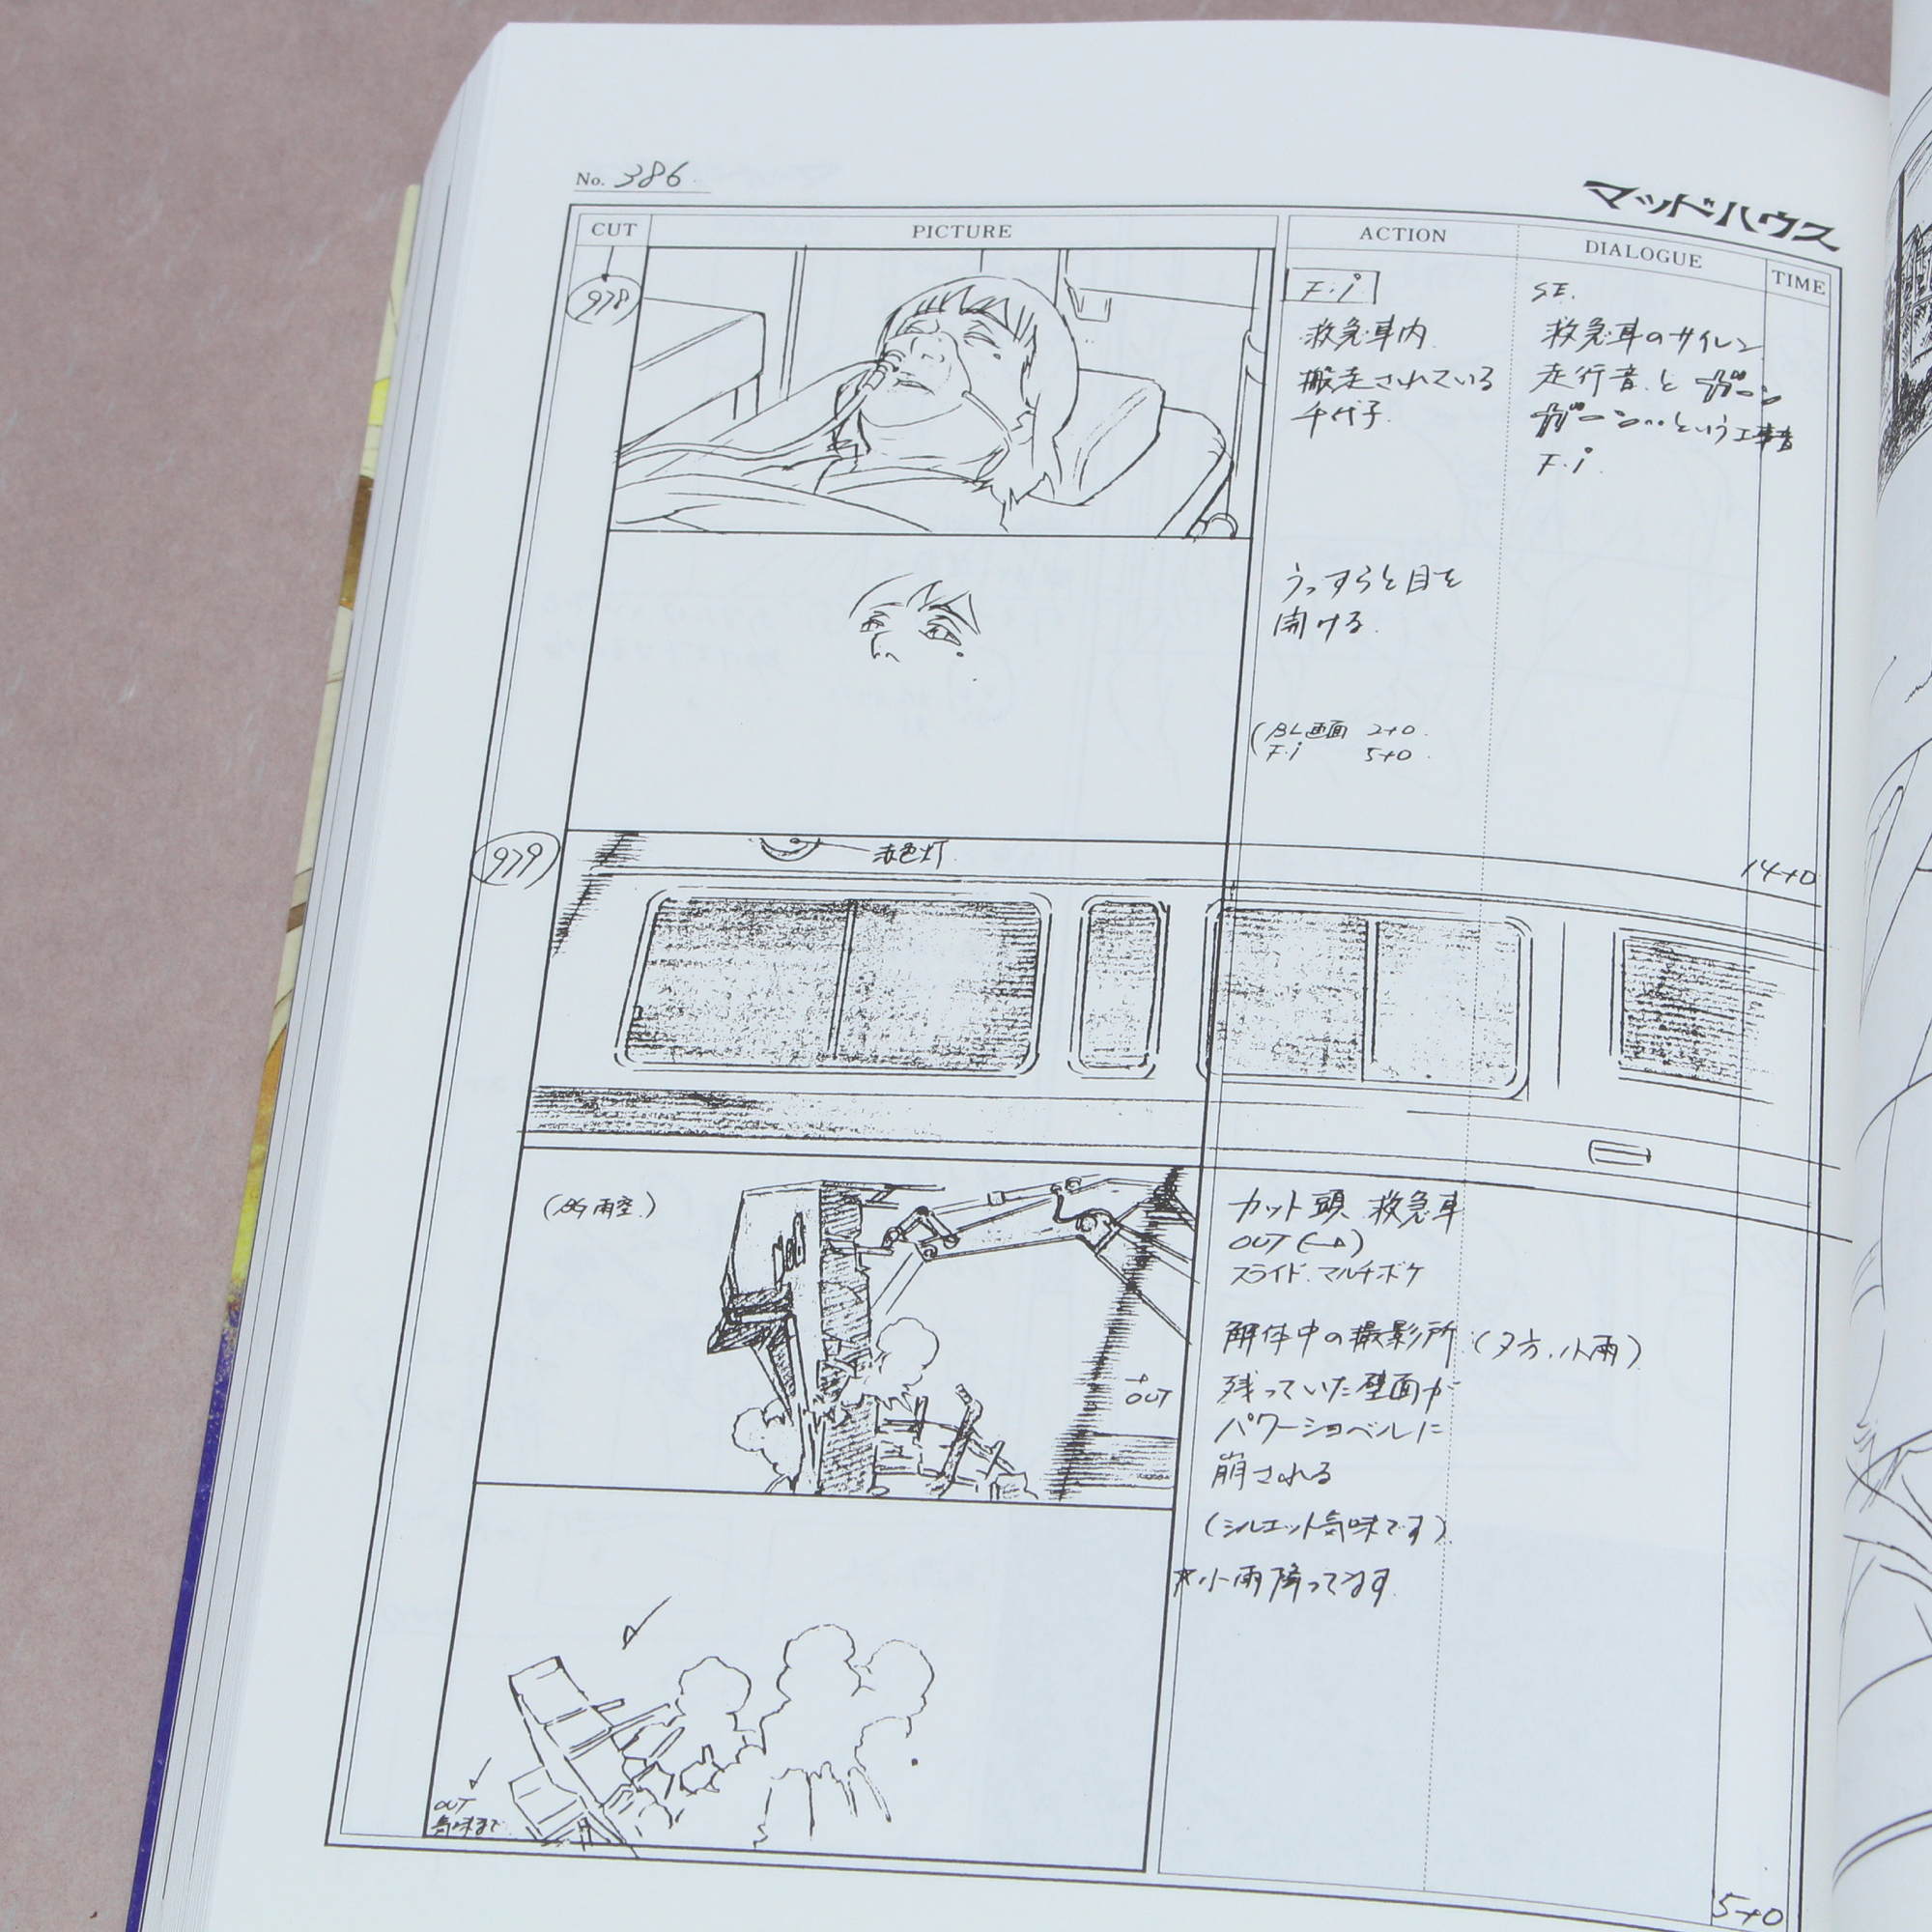 No. 386
マッドハウス
CUT
PICTURE
ACTION
DIALOGUE
TIME
978
F・i
救急車内
搬送されている
千代子
S.E.
救急車のサイレン
走行音とガーン
ガーン…という工事音
F・i
うっすらと目を
開ける
(BL画面 2+0
F・i 5+0
14+0
979
赤色灯
(BG雨空)
OUT
カット頭 救急車
OUT(→)
スライド.マルチボケ
解体中の撮影所(夕方.小雨)
残っていた壁面が
パワーショベルに
崩される
(シルエット気味です)
*小雨降ってます
OUT
気味まで
5+0